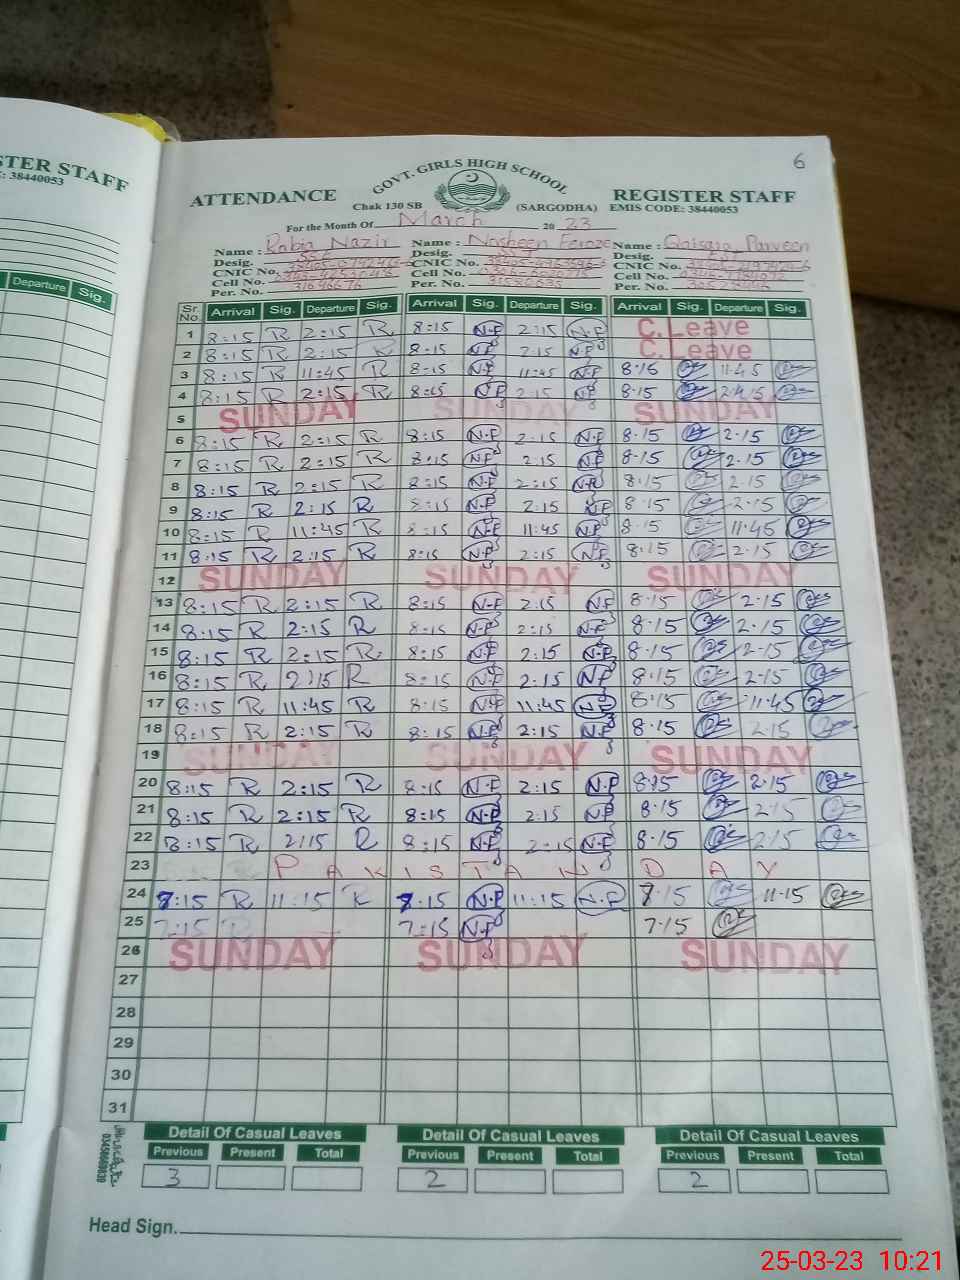 STER STAFF
E: 38440053
Departure Sig.
6
GOVT. GIRLS HIGH SCHOOL
ATTENDANCE REGISTER STAFF
Chak 130 SB (SARGODHA) EMIS CODE: 38440053
For the Month Of March 20 23
Name : Rabia Nazir Name : Nosheen Feroze Name : Qaisara Parveen
Desig. SSE Desig. Desig. EST
CNIC No. CNIC No. CNIC No.
Cell No. Cell No. Cell No.
Per. No. Per. No. Per. No.
Sr. No. Arrival Sig. Departure Sig. Arrival Sig. Departure Sig. Arrival Sig. Departure Sig.
1 8:15 R 2:15 R 8:15 N.F 2:15 N.F C. Leave
2 8:15 R 2:15 R 8:15 N.F 2:15 N.F C. Leave
3 8:15 R 11:45 R 8:15 N.F 11:45 N.F 8.15 11.45
4 8:15 R 2:15 R 8:15 N.F 2:15 N.F 8.15
5 SUNDAY SUNDAY SUNDAY
6 8:15 R 2:15 R 8:15 N.F 2:15 N.F 8.15 2.15
7 8:15 R 2:15 R 8:15 N.F 2:15 N.F 8.15 2.15
8 8:15 R 2:15 R 8:15 N.F 2:15 N.F 8.15 2.15
9 8:15 R 2:15 R 8:15 N.F 2:15 N.F 8.15 2.15
10 8:15 R 11:45 R 8:15 N.F 11:45 N.F 8.15 11.45
11 8:15 R 2:15 R 8:15 N.F 2:15 N.F 8.15 2.15
12 SUNDAY SUNDAY SUNDAY
13 8:15 R 2:15 R 8:15 N.F 2:15 N.F 8.15 2.15
14 8:15 R 2:15 R 8:15 N.F 2:15 N.F 8.15 2.15
15 8:15 R 2:15 R 8:15 N.F 2:15 N.F 8.15 2.15
16 8:15 R 2:15 R 8:15 N.F 2:15 N.F 8.15 2.15
17 8:15 R 11:45 R 8:15 N.F 11:45 N.F 8.15 11.45
18 8:15 R 2:15 R 8:15 N.F 2:15 N.F 8.15 2.15
19 SUNDAY SUNDAY SUNDAY
20 8:15 R 2:15 R 8:15 N.F 2:15 N.F 8.15 2.15
21 8:15 R 2:15 R 8:15 N.F 2:15 N.F 8.15 2.15
22 8:15 R 2:15 R 8:15 N.F 2:15 N.F 8.15 2.15
23 PAKISTAN DAY
24 7:15 R 11:15 R 7:15 N.F 11:15 N.F 7.15 11.15
25 7:15 R 7:15 N.F 7.15
26 SUNDAY SUNDAY SUNDAY
27
28
29
30
31
Detail Of Casual Leaves Detail Of Casual Leaves Detail Of Casual Leaves
Previous Present Total Previous Present Total Previous Present Total
3 2 2
Head Sign.
25-03-23 10:21